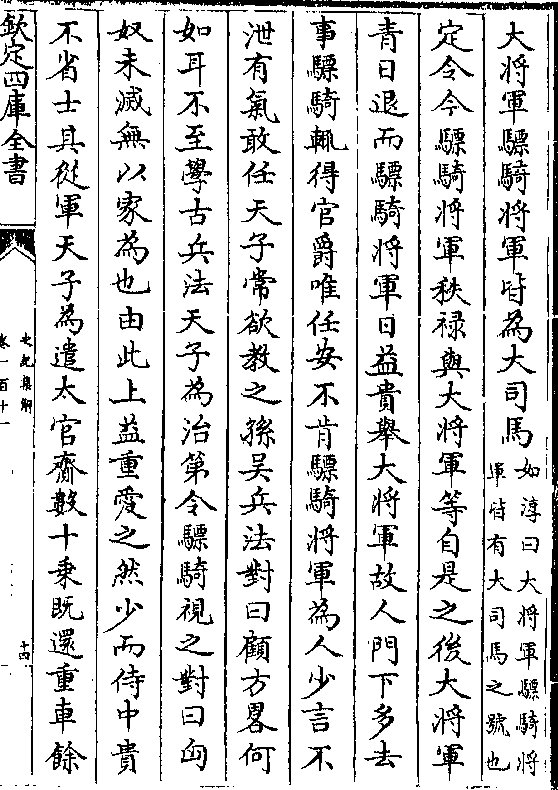 大將軍驃騎將軍皆為大司馬如淳曰大將軍驃騎將軍皆有大司馬之號也
定令令驃騎將軍秩禄與大將軍等自是之後大將軍
青日退而驃騎將軍日益貴舉大將軍故人門下多去
事驃騎輒得官爵唯任安不肯驃騎將軍為人少言不
泄有氣敢任天子常欲教之孫吳兵法對曰顧方畧何
如耳不至學古兵法天子為治第令驃騎視之對曰匈
奴未滅無以家為也由此上益重愛之然少而侍中貴
不省士其從軍天子為遣太官齎數十乗既還重車餘
欽定四庫全書
史記集解
卷一百十一
十四